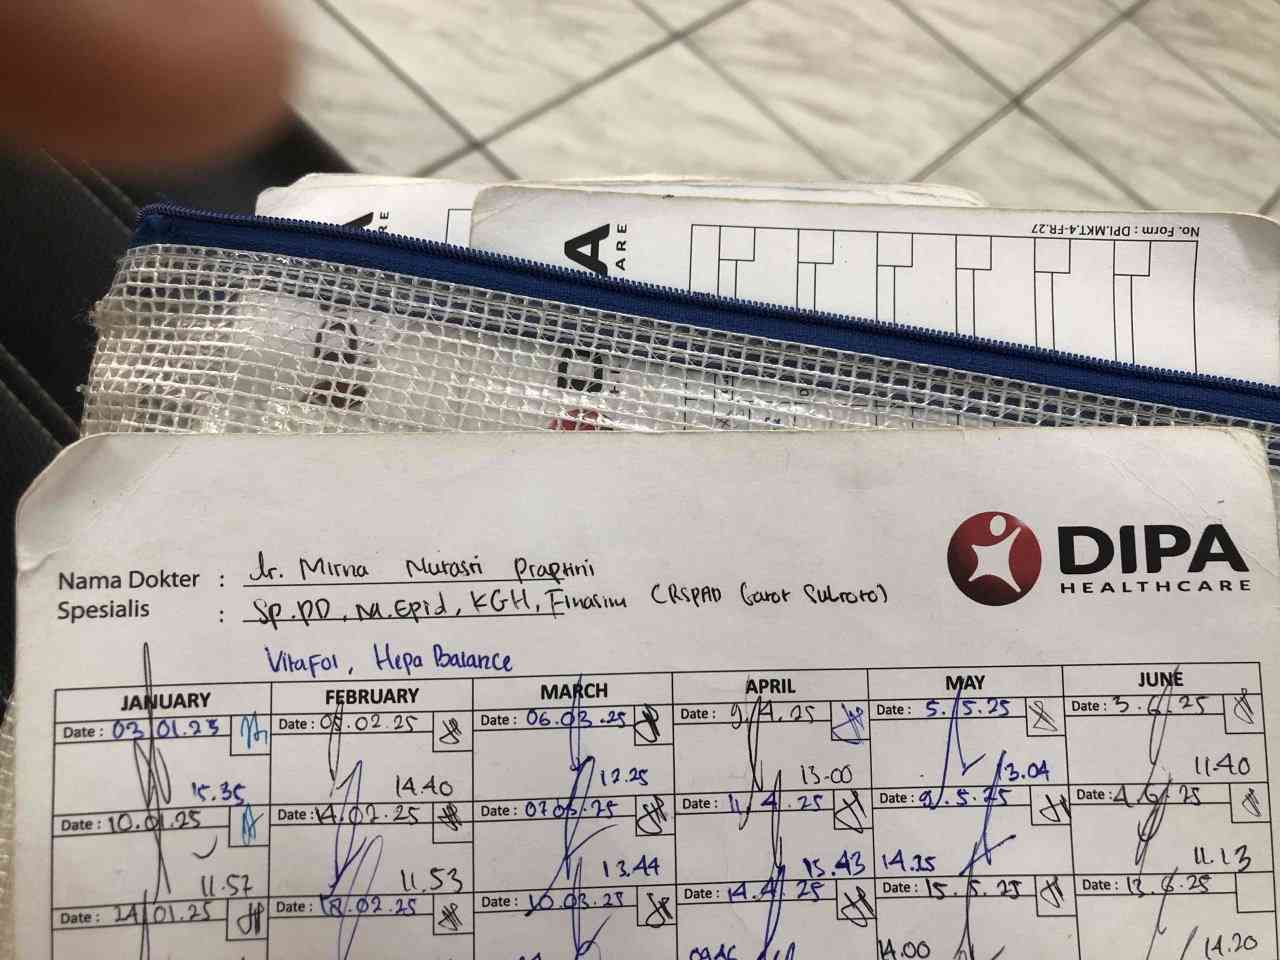 No. Form : DPI.MKT.4-FR.27
A
ARE
RE
DIPA
HEALTHCARE
Nama Dokter : dr. Mirna Nurasri Praptini
Spesialis : Sp.PD, Na.Epid, KGH, Finasim (RSPAD Gatot Subroto)
VitaFol, Hepa Balance
JANUARY FEBRUARY MARCH APRIL MAY JUNE
Date : 03.01.25 Date : 05.02.25 Date : 06.03.25 Date : 9.4.25 Date : 5.5.25 Date : 3.6.25
15.35 14.40 12.25 13.00 13.04 11.40
Date : 10.01.25 Date : 14.02.25 Date : 07.03.25 Date : 11.4.25 Date : 9.5.25 Date : 4.6.25
11.57 11.53 13.44 15.43 14.25 11.13
Date : 14.01.25 Date : 18.02.25 Date : 10.03.25 Date : 14.4.25 Date : 15.5.25 Date : 13.6.25
14.00 14.20